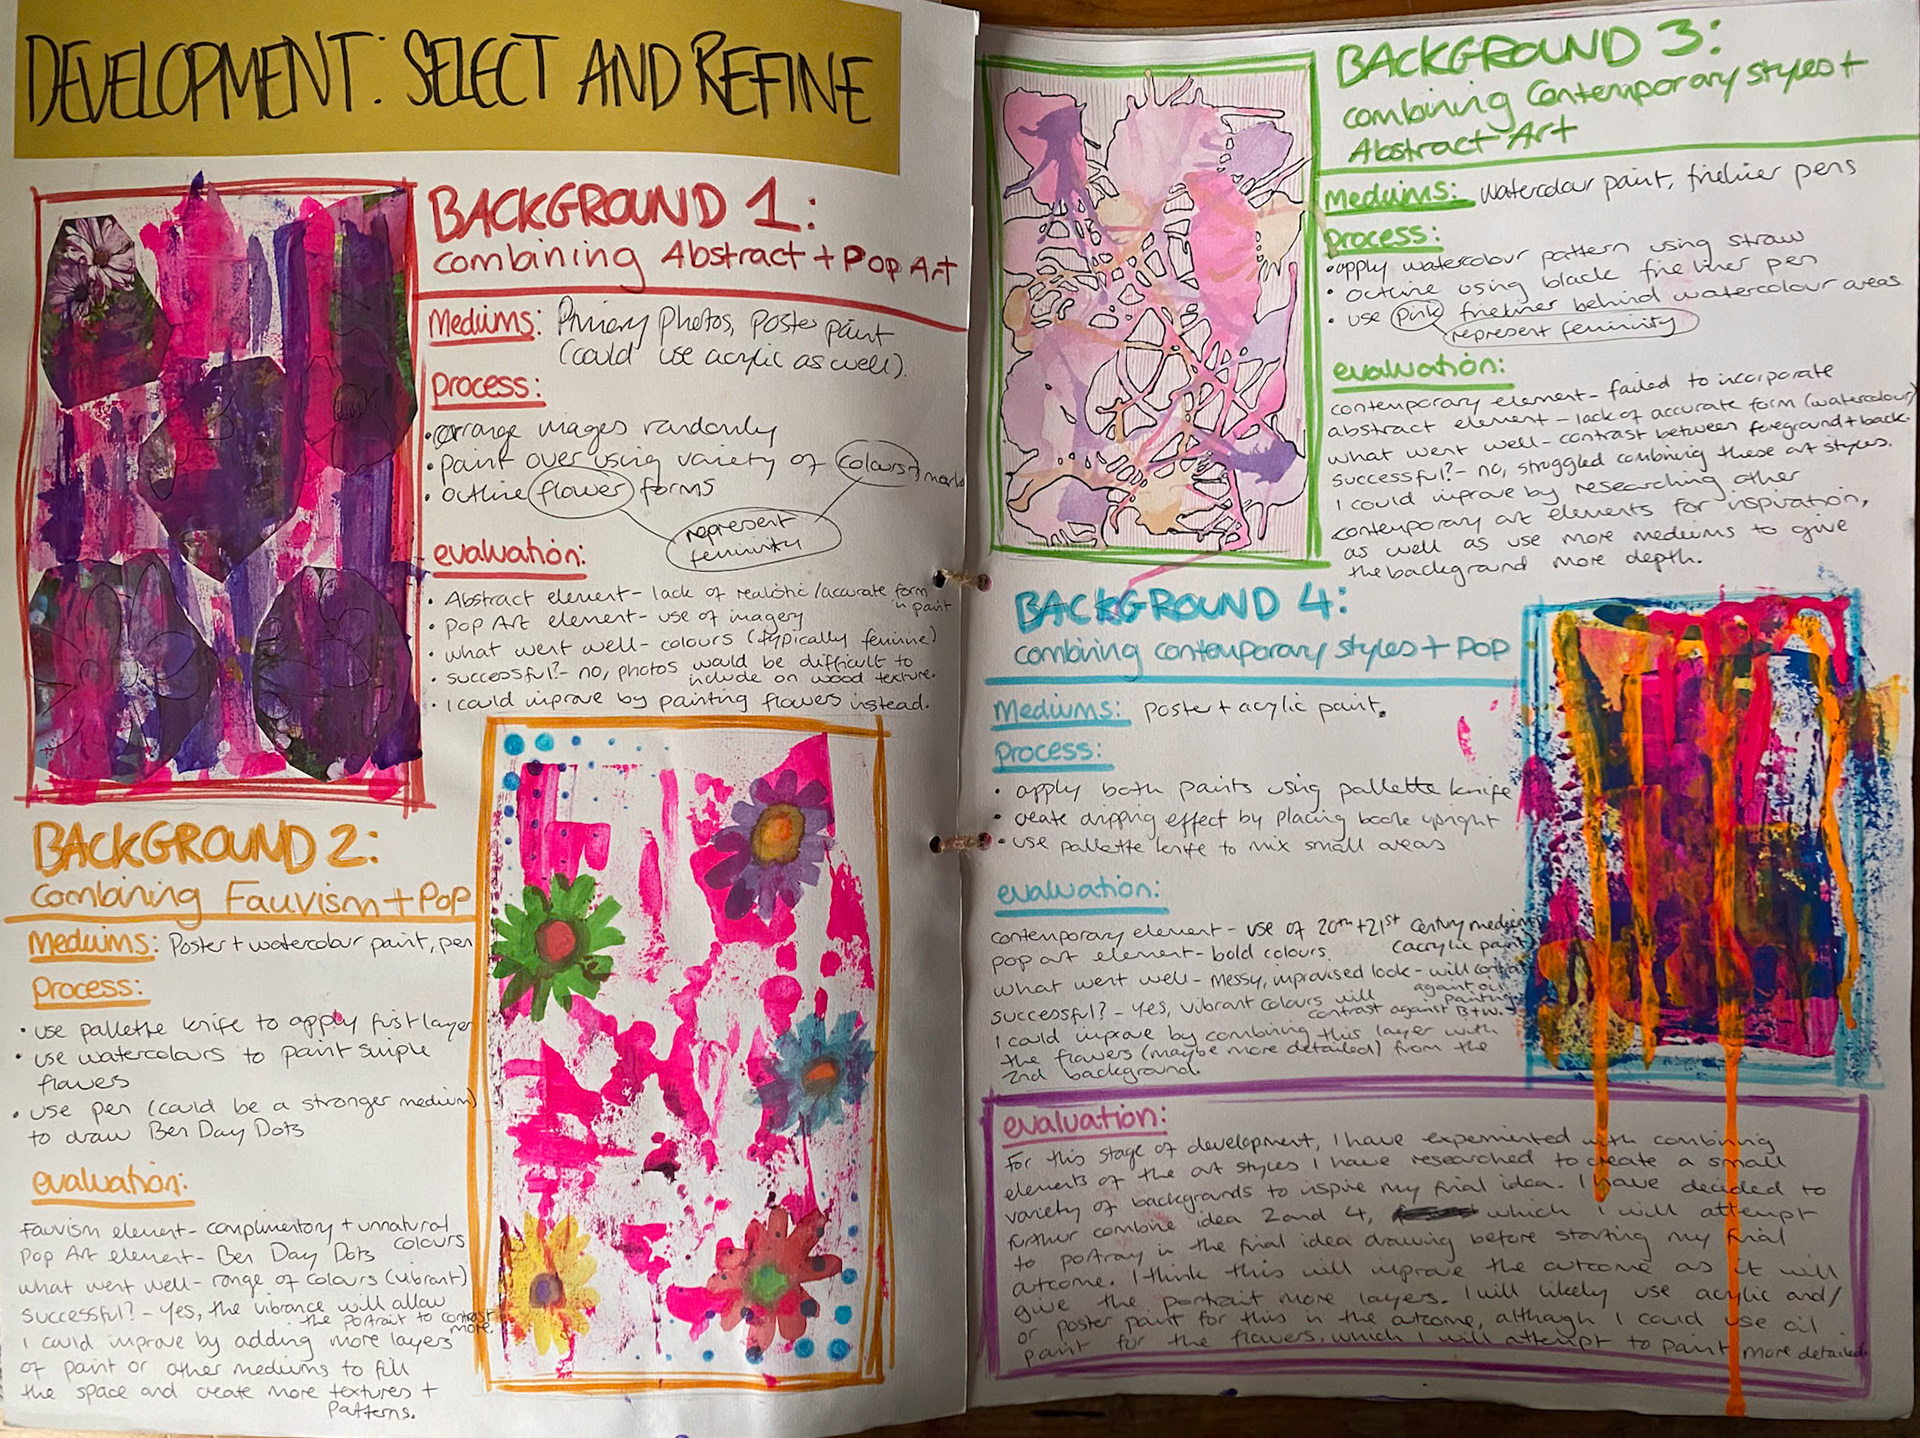 DEVELOPMENT: SELECT AND REFINE
BACKGROUND 1:
combining Abstract + Pop Art
Mediums: Primary photos, poster paint
(could use acrylic as well).
process:
• arrange images randomly
• paint over using variety of colours +
• outline flower forms
represent
feminity
evaluation:
• Abstract element - lack of realistic/accurate form
in paint
• pop Art element - use of imagery
• what went well - colours (typically feminine)
• successful? - no, photos would be difficult to
include on wood texture.
• I could improve by painting flowers instead.
BACKGROUND 2:
combining Fauvism + Pop
Mediums: Poster + watercolour paint, pen
process:
• use pallette knife to apply first layer
• use watercolours to paint simple
flowers
• use pen (could be a stronger medium)
to draw Ben Day Dots
evaluation:
Fauvism element - complimentory + unnatural
colours
Pop Art element - Ben Day Dots
what went well - range of colours (vibrant)
successful? - yes, the vibrance will allow
the portrait to contrast
more.
I could improve by adding more layers
of paint or other mediums to fill
the space and create more textures +
patterns.
BACKGROUND 3:
combining Contemporary styles +
Abstract Art
Mediums: watercolour paint, fineliner pens
process:
• apply watercolour pattern using straw
• outline using black fineliner pen
• use pink fineliner behind watercolour areas
represent feminity
evaluation:
contemporary element - failed to incorporate
abstract element - lack of accurate form (watercolour)
what went well - contrast between foreground + back.
successful? - no, struggled combining these art styles.
I could improve by researching other
contemporary art elements for inspiration,
as well as use more mediums to give
the background more depth.
BACKGROUND 4:
combining contemporary styles + Pop
Mediums: Poster + acrylic paint.
process:
• apply both paints using pallette knife
• create dripping effect by placing book upright
• use pallette knife to mix small areas
evaluation:
contemporary element - use of 20th + 21st Century mediums
(acrylic paint)
pop art element - bold colours.
what went well - messy, improvised look - will contrast
against oil
painting
successful? - yes, vibrant colours will
contrast against B+W.
I could improve by combining this layer with
the flowers (maybe more detailed) from the
2nd background.
evaluation:
For this stage of development, I have experimented with combining
elements of the art styles I have researched to create a small
variety of backgrounds to inspire my final idea. I have decided to
further combine idea 2 and 4, which I will attempt
to portray in the final idea drawing before starting my final
outcome. I think this will improve the outcome as it will
give the portrait more layers. I will likely use acrylic and/
or poster paint for this in the outcome, although I could use oil
paint for the flowers, which I will attempt to paint more detailed.